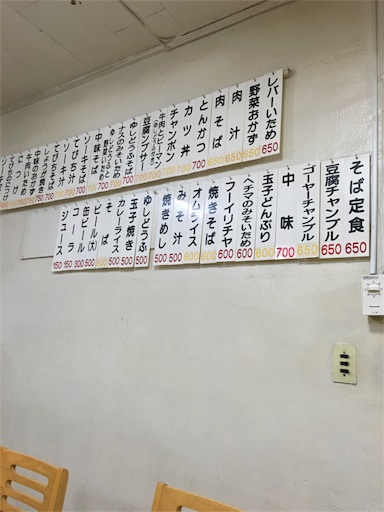 レバーいため 650
野菜おかず 650
肉汁 650
肉そば 650
とんかつ 700
カツ丼 700
チャンポン 700
牛肉とピーマン 700
豆腐ンブサー 700
ゆしどうふそば
ナスのみそいため
中味そば
ソーキそば
てびちそば
ソーキ汁
てびち汁
しょうが焼き 700
中味のおかず 750
牛肉いため
そば定食 650
豆腐チャンプル 650
ゴーヤーチャンプル 650
中味 700
玉子どんぶり 600
ヘチマのみそいため 600
フーイリチャ 600
焼きそば 600
オムライス 600
みそ汁 500
焼きめし 500
ゆしどうふ 500
玉子焼き 500
カレーライス 500
そば
ビール(大) 600
缶ビール 300
コーラ 150
ジュース 150